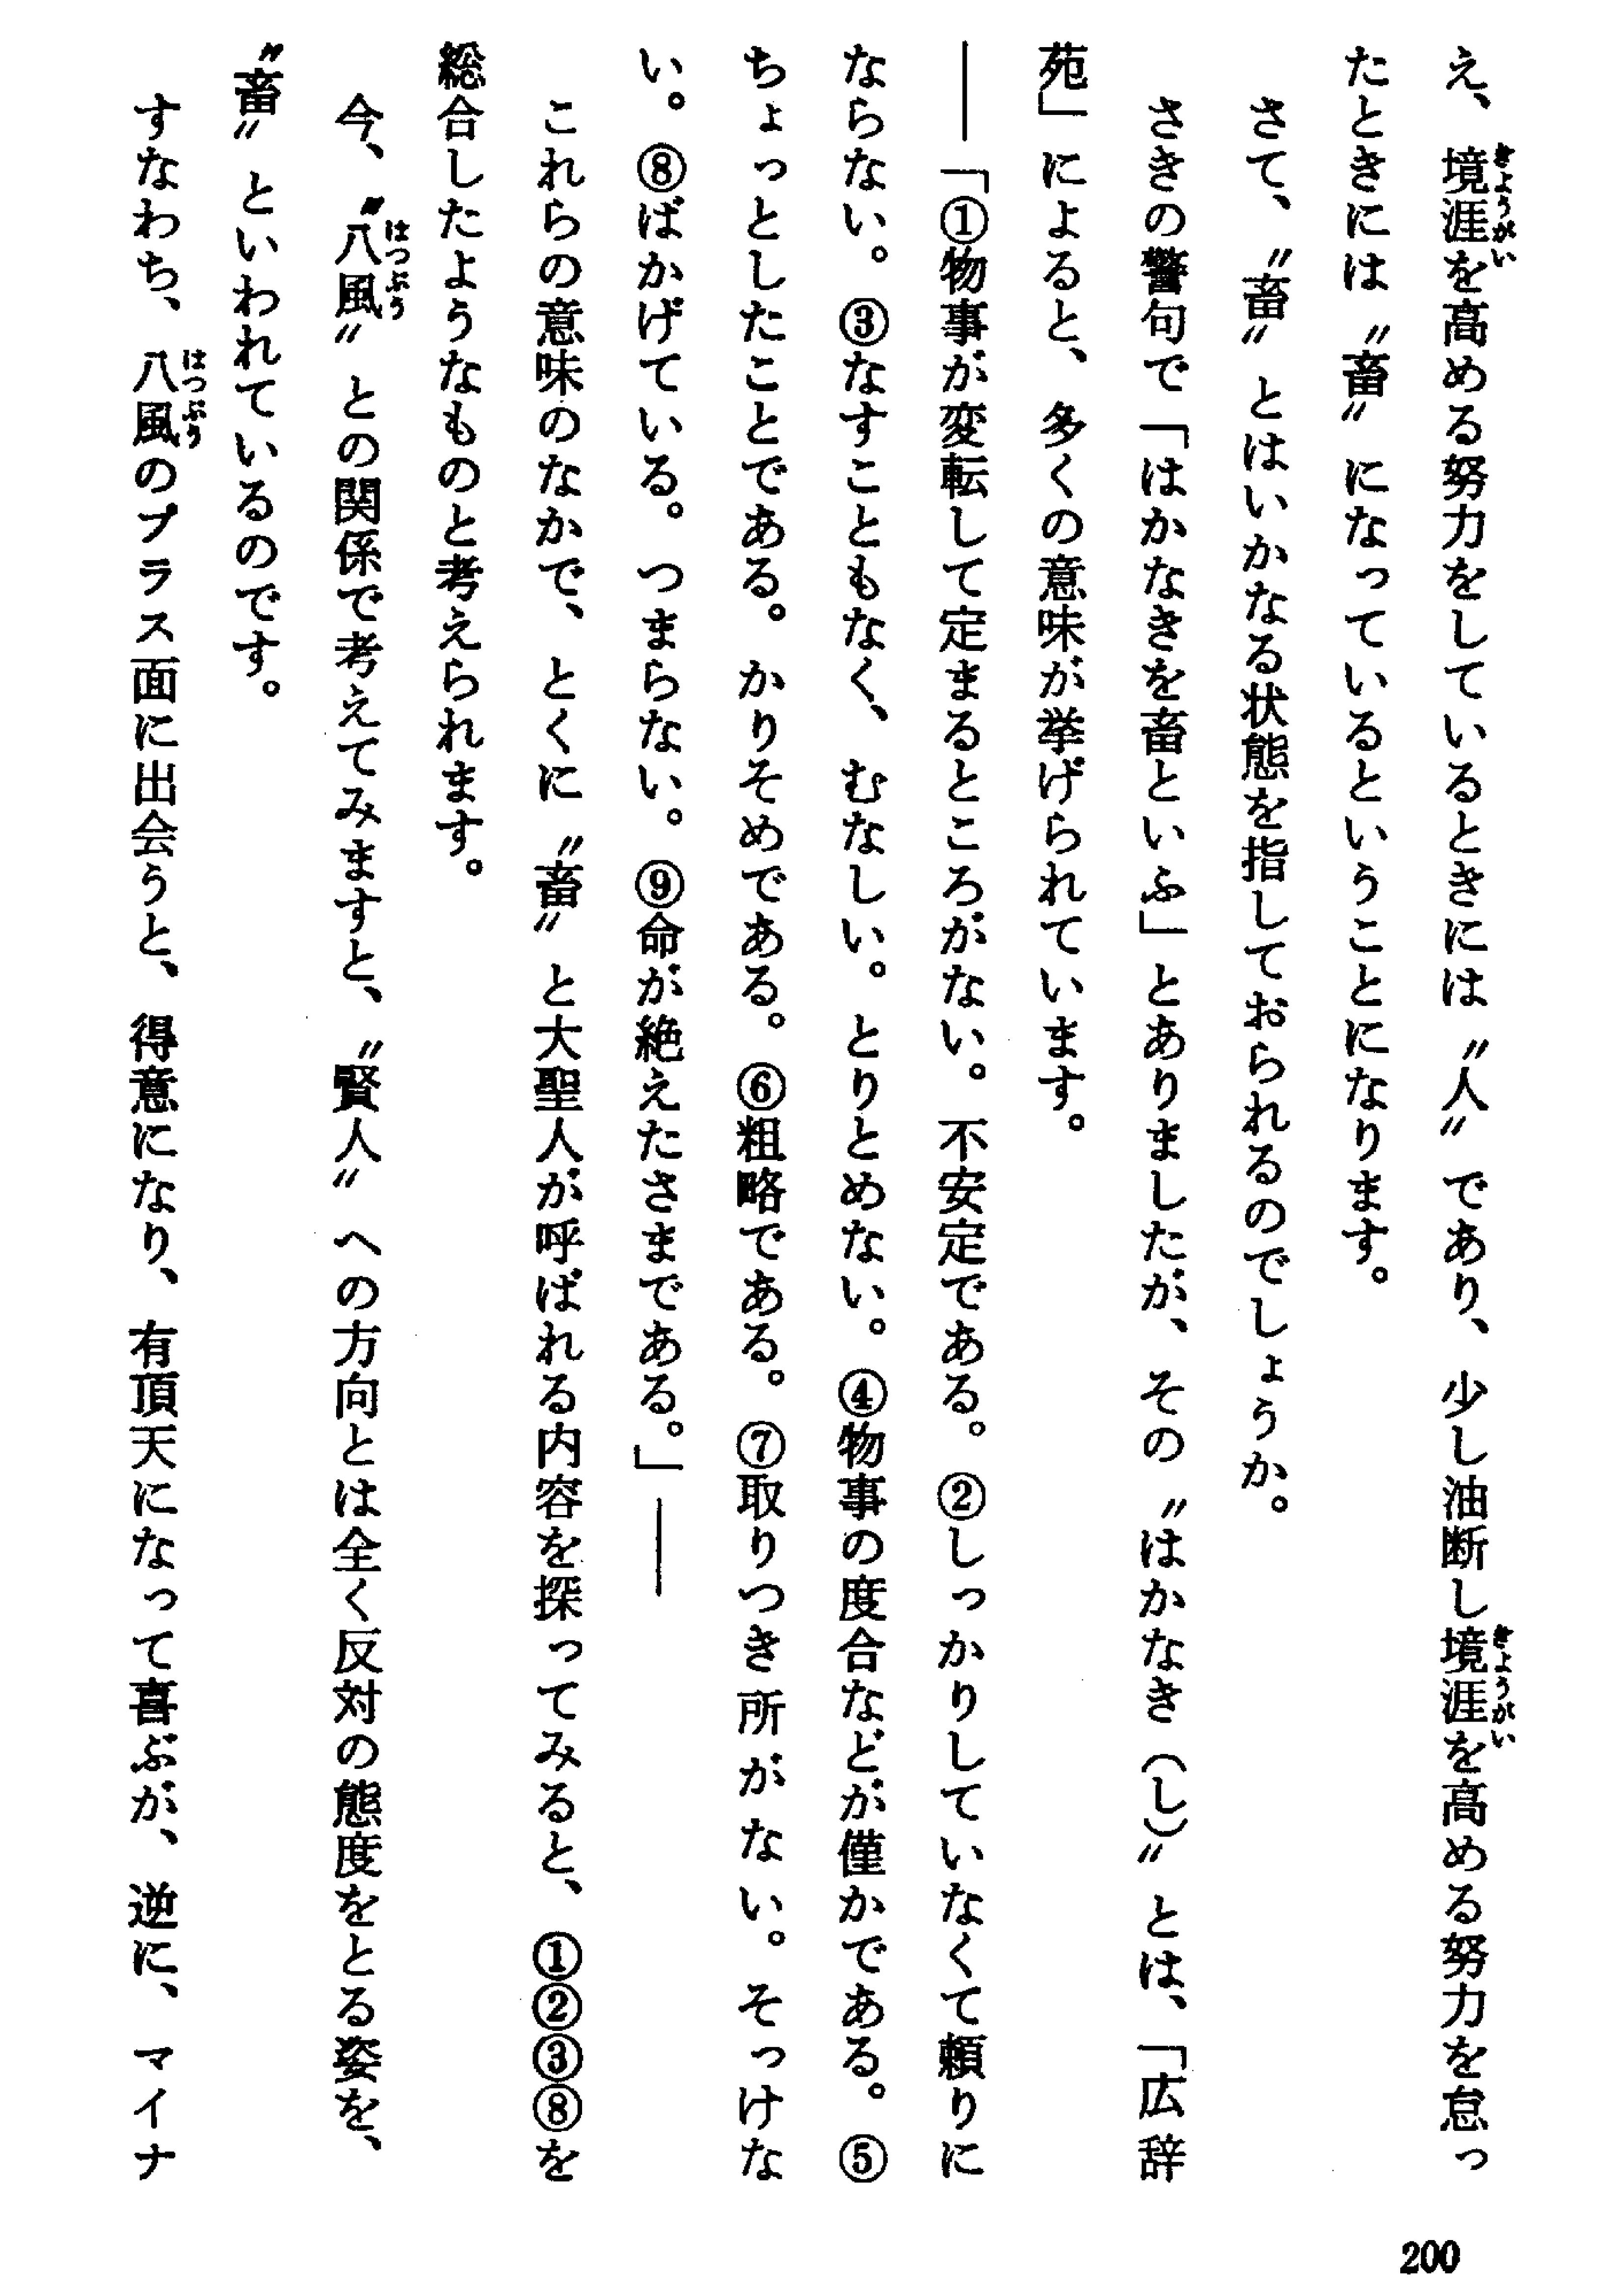 え、境涯を高める努力をしているときには〝人〟であり、少し油断し境涯を高める努力を怠っ
たときには〝畜〟になっているということになります。
さて、〝畜〟とはいかなる状態を指しておられるのでしょうか。
さきの警句で「はかなきを畜といふ」とありましたが、その〝はかなき（し）〟とは、「広辞
苑」によると、多くの意味が挙げられています。
――「①物事が変転して定まるところがない。不安定である。②しっかりしていなくて頼りに
ならない。③なすこともなく、むなしい。とりとめない。④物事の度合などが僅かである。⑤
ちょっとしたことである。かりそめである。⑥粗略である。⑦取りつき所がない。そっけな
い。⑧ばかげている。つまらない。⑨命が絶えたさまである。」――
これらの意味のなかで、とくに〝畜〟と大聖人が呼ばれる内容を探ってみると、①②③⑧を
総合したようなものと考えられます。
今、〝八風〟との関係で考えてみますと、〝賢人〟への方向とは全く反対の態度をとる姿を、
〝畜〟といわれているのです。
すなわち、八風のプラス面に出会うと、得意になり、有頂天になって喜ぶが、逆に、マイナ
きょうがい
きょうがい
はっぷう
はっぷう
200